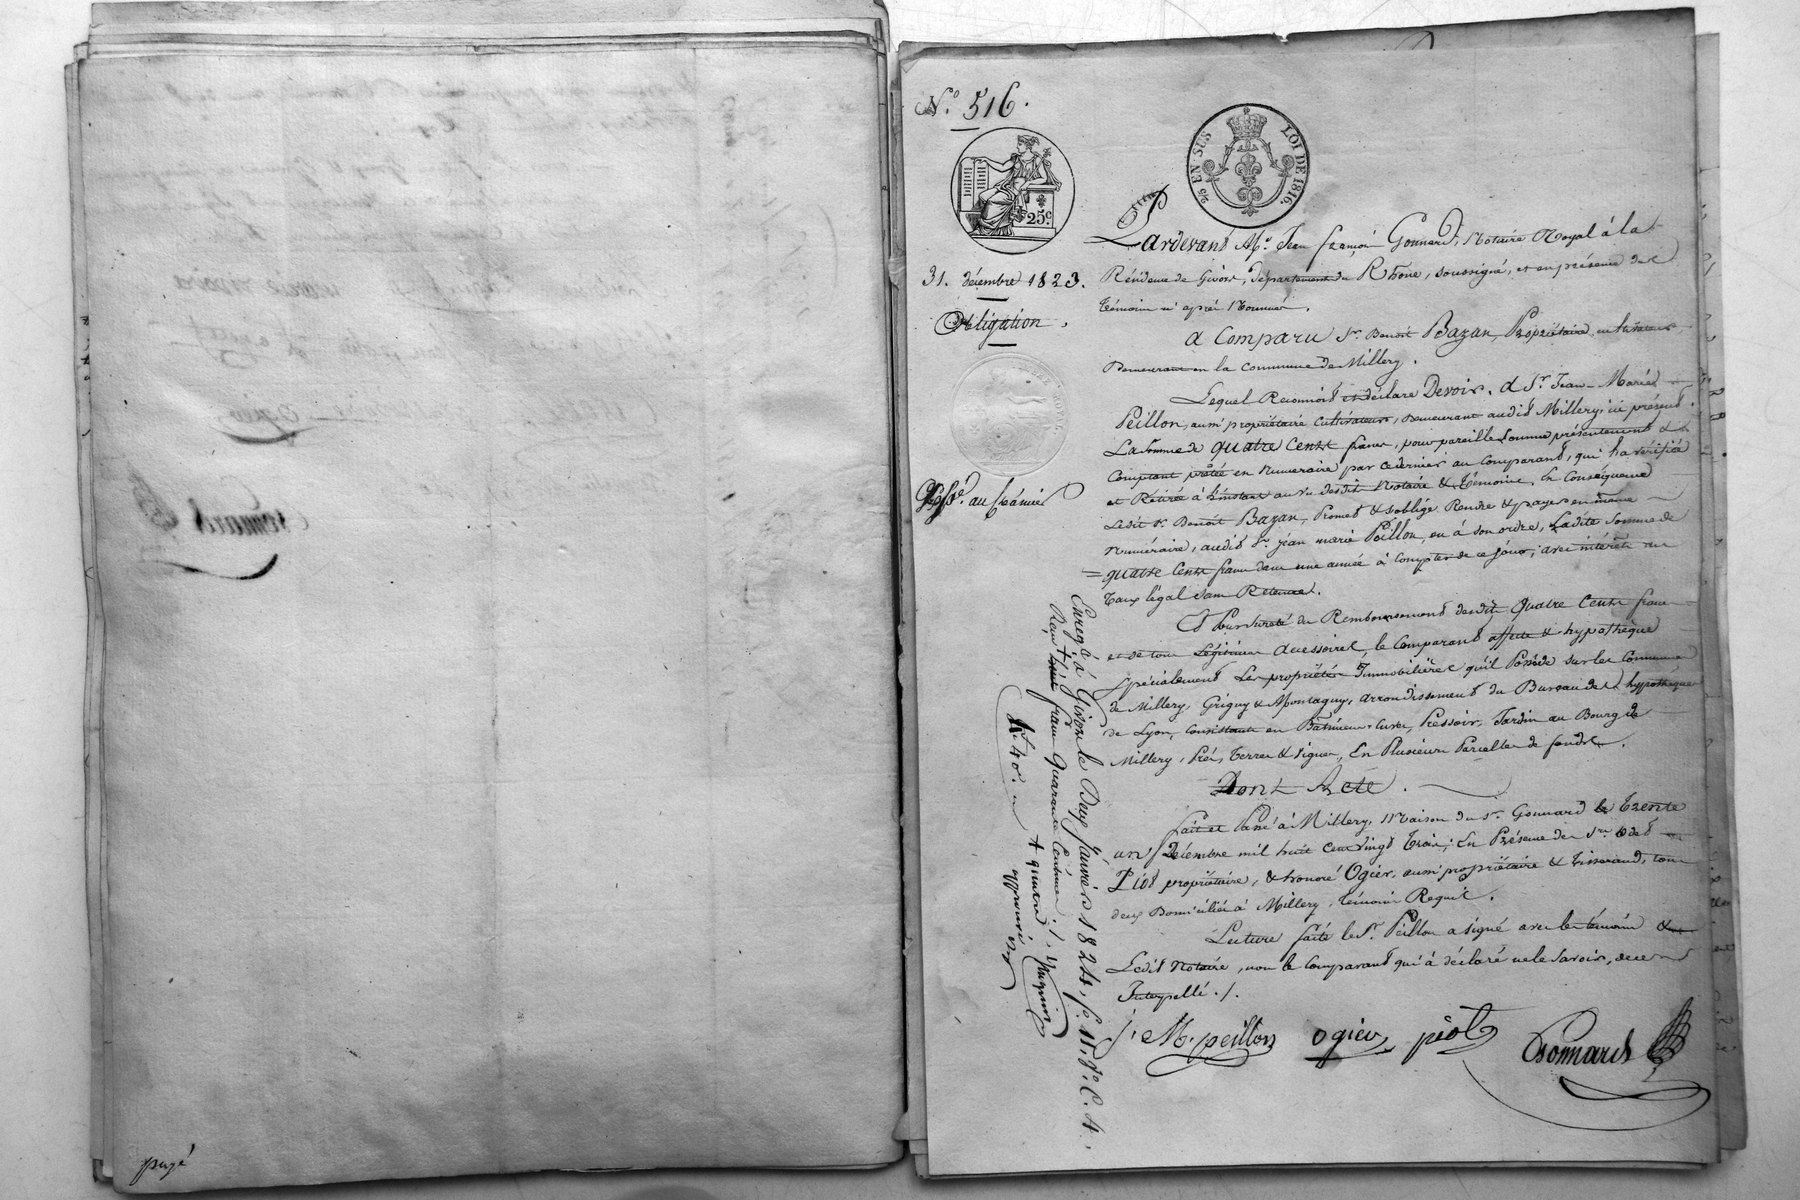 payé
N.o 516.
25 EN SUS LOI DE 1816.
25c.
31. décembre 1823.
Obligation.
au Créancier
Pardevant Me. Jean françois Gonnard, Notaire Royal à la
Résidence de Givors, département du Rhône, soussigné, et en présence des
témoins ci après Nommés.
A Comparu Sr. Benoit Bazan, Propriétaire cultivateur,
Demeurant en la Commune de Millery.
Lequel Reconnoit et déclare Devoir, à Sr. Jean-Marie
Peillon, aussi propriétaire Cultivateur, Demeurant audit Millery, ici présent,
La Somme de quatre Cents francs, pour pareille Somme présentement &
Comptant prêtée en Numéraire par ce dernier au Comparant, qui l'a vérifiée
et Retirée à l'instant au vu desdits Notaire & Témoins, En Conséquence
Ledit Sr. Benoit Bazan, Promet & s'oblige Rendre & payer en même
Numéraire, audit Sr. jean marie Peillon, ou à son ordre, Ladite Somme de
quatre Cents francs dans une année à Compter de ce jour, avec intérêts au
Taux légal sans Retenue.
Et Pour Sureté du Remboursement desdits Quatre Cents francs
et de tous Légitimes Accessoires, le Comparant affecte & hypothèque
Spécialement Les propriétés Immobilières qu'il Possède sur les Communes
de Millery, Grigny & Montagny, arrondissement du Bureau des hypothèques
de Lyon, Consistant en Bâtiments, Cuves, Pressoir, Jardin au Bourg de
Millery, Prés, Terres & Vignes, En Plusieurs Parcelles de fonds.
Dont Acte.
fait et Passé à Millery, Maison du Sr. Gonnard le Trente
un Décembre mil huit Cent vingt Trois; En Présence des Srs
Piot propriétaire, & honoré Ogier, aussi propriétaire & Tisserand, tous
deux Domiciliés à Millery, témoins Requis.
Lecture faite le Sr. Peillon a signé avec les témoins &
Ledit Notaire, non le Comparant qui à déclaré ne le Savoir, de ce
Interpellé ./.
j. M. peillon ogier piot Gonnard
Enregé. à Givors le Deux Janvier 1824, fo. 11. Ro. C. 4.
Reçu francs Quarante Centimes ./.
Gonnard